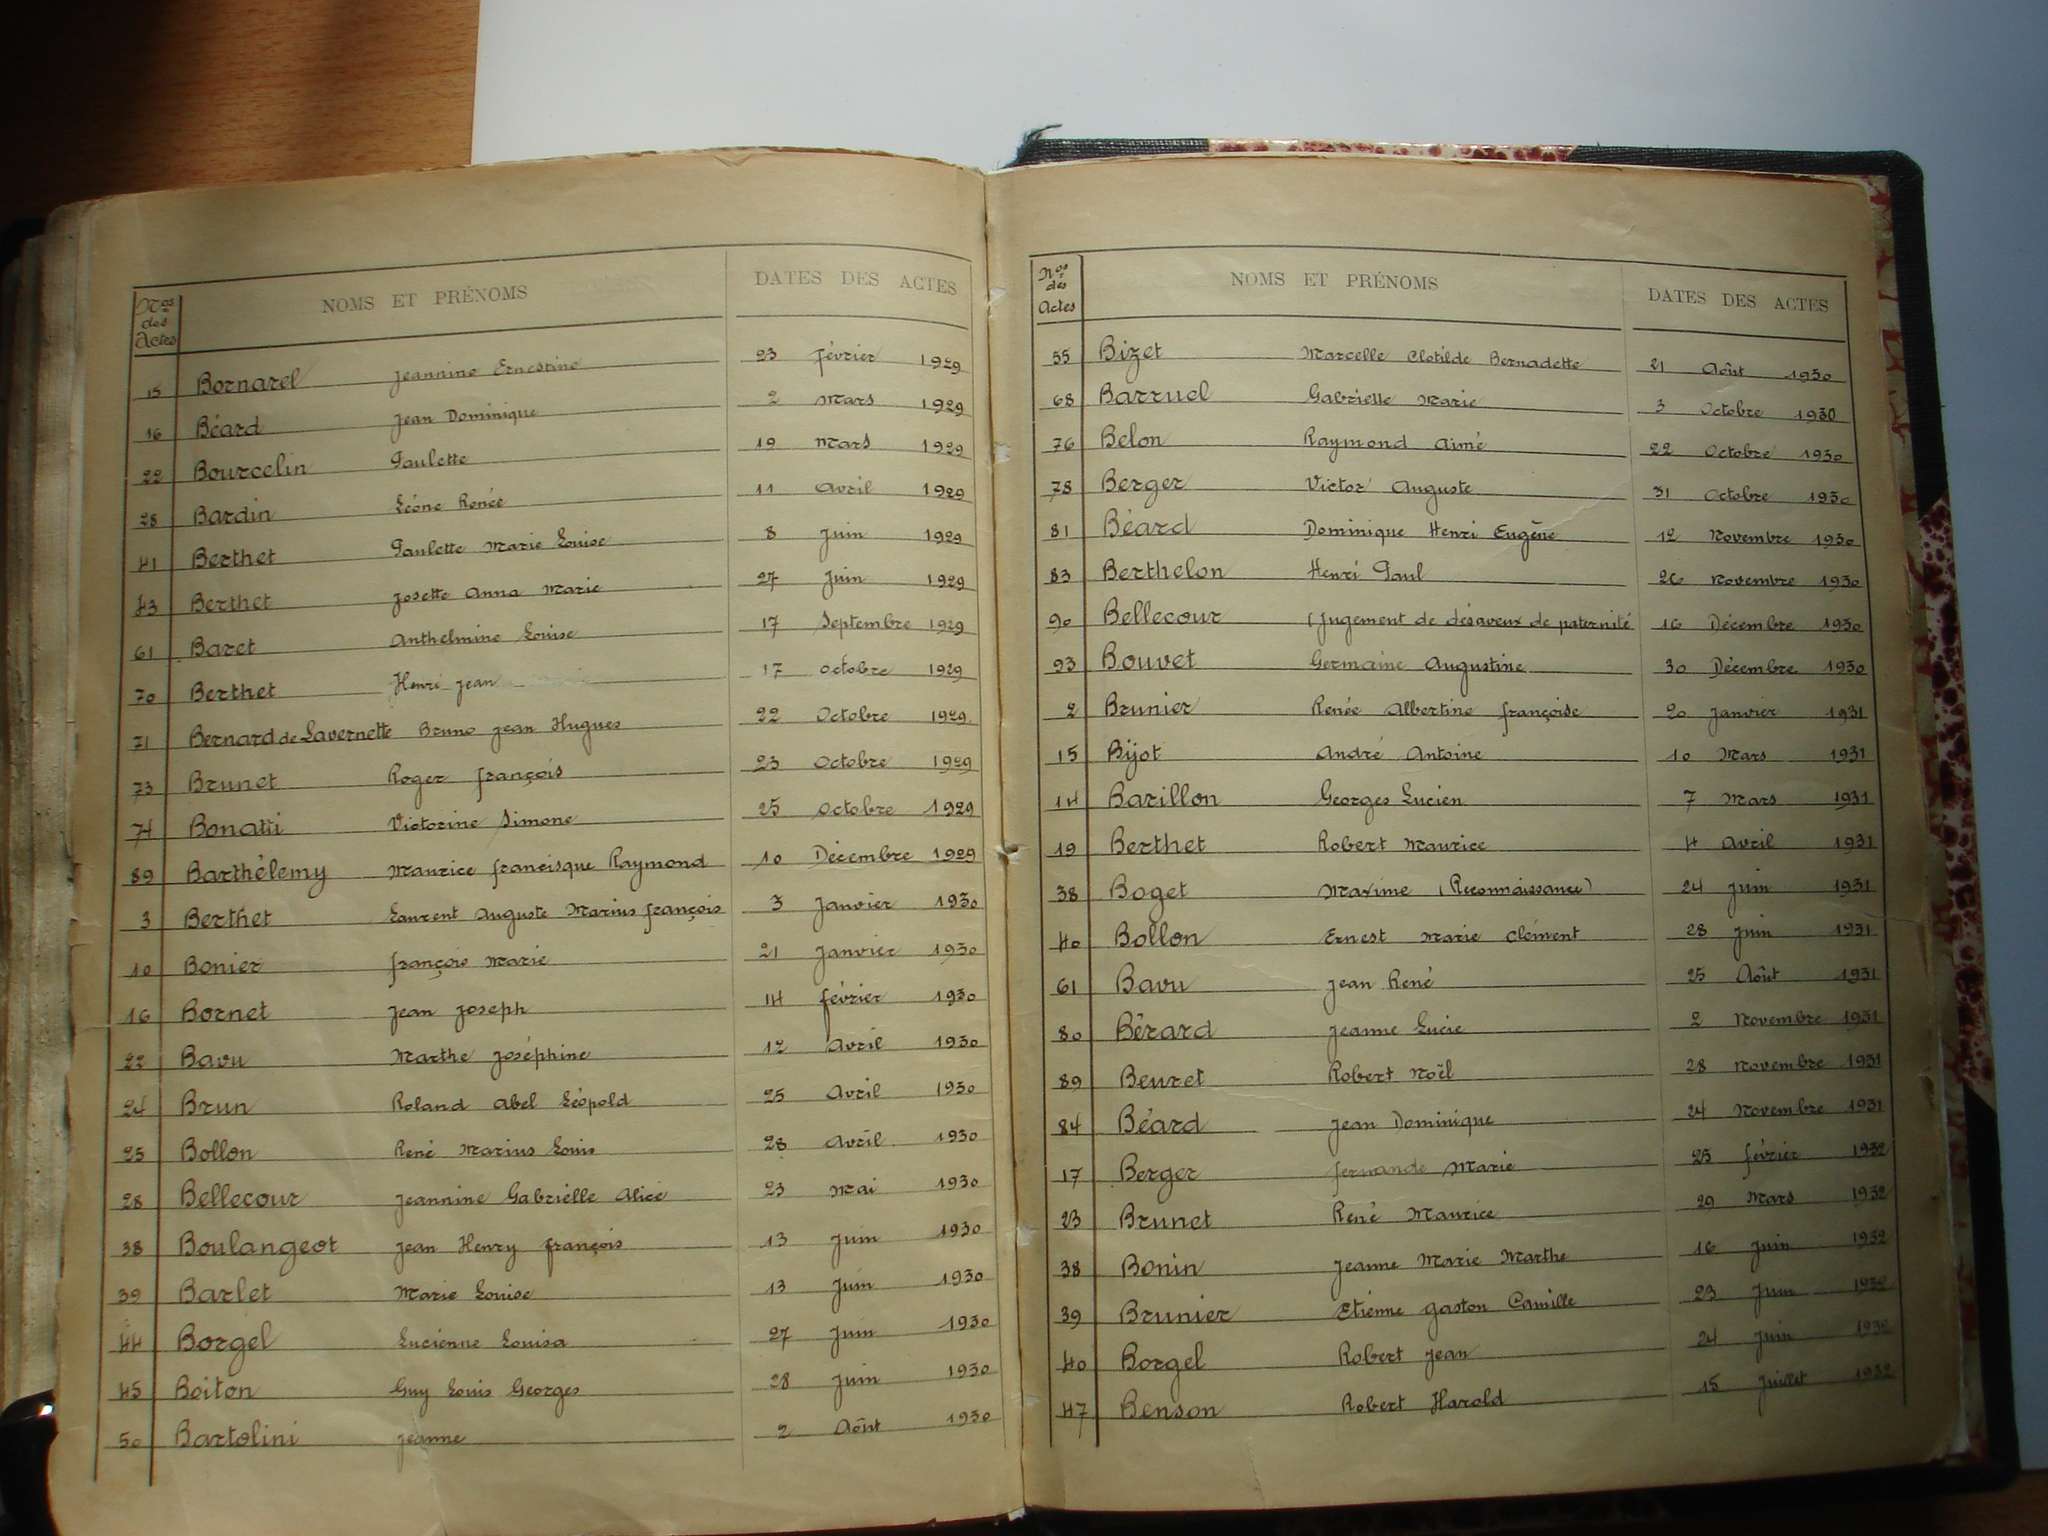 Nos des Actes NOMS ET PRÉNOMS DATES DES ACTES
15 Bornarel Jeannine Ernestine 23 février 1929
16 Béard Jean Dominique 2 Mars 1929
22 Bourcelin Paulette 19 Mars 1929
28 Bardin Léone Renée 11 Avril 1929
41 Berthet Paulette Marie Louise 8 Juin 1929
43 Berthet Josette Anna Marie 27 Juin 1929
61 Baret Anthelmine Louise 17 Septembre 1929
70 Berthet Henri Jean 17 Octobre 1929
71 Bernard de Lavernette Bruno Jean Hugues 22 Octobre 1929
73 Brunet Roger François 23 Octobre 1929
74 Bonatti Victorine Simone 25 Octobre 1929
89 Barthélemy Maurice Francisque Raymond 10 Décembre 1929
3 Berthet Laurent Auguste Marius François 3 Janvier 1930
10 Bonier François Marie 21 Janvier 1930
16 Bornet Jean Joseph 14 février 1930
22 Bavu Marthe Joséphine 12 Avril 1930
24 Brun Roland Abel Léopold 25 Avril 1930
25 Bollon René Marius Louis 28 Avril 1930
28 Bellecour Jeannine Gabrielle Alice 23 Mai 1930
38 Boulangeot Jean Henry François 13 Juin 1930
39 Barlet Marie Louise 13 Juin 1930
44 Borgel Lucienne Louisa 27 Juin 1930
45 Boiton Guy Louis Georges 28 Juin 1930
50 Bartolini Jeanne 2 Août 1930
Nos des Actes NOMS ET PRÉNOMS DATES DES ACTES
55 Bizet Marcelle Clotilde Bernadette 21 Août 1930
68 Barruel Gabrielle Marie 3 Octobre 1930
76 Belon Raymond Aimé 22 Octobre 1930
78 Berger Victor Auguste 31 Octobre 1930
81 Béard Dominique Henri Eugène 12 Novembre 1930
83 Berthelon Henri Paul 26 Novembre 1930
90 Bellecour (Jugement de désaveux de paternité 16 Décembre 1930
93 Bouvet Germaine Augustine 30 Décembre 1930
2 Brunier Renée Albertine Françoise 20 Janvier 1931
15 Bijot André Antoine 10 Mars 1931
14 Barillon Georges Lucien 7 Mars 1931
19 Berthet Robert Maurice 4 Avril 1931
38 Boget Maxime (Reconnaissance) 24 Juin 1931
40 Bollon Ernest Marie Clément 28 Juin 1931
61 Bavu Jean René 25 Août 1931
80 Bérard Jeanne Lucie 2 Novembre 1931
89 Beuret Robert Noël 28 Novembre 1931
84 Béard Jean Dominique 24 Novembre 1931
17 Berger Fernande Marie 25 février 1932
23 Brunet René Maurice 29 Mars 1932
38 Bonin Jeanne Marie Marthe 16 Juin 1932
39 Brunier Etienne Gaston Camille 23 Juin 1932
40 Borgel Robert Jean 24 Juin 1932
47 Benson Robert Harold 15 Juillet 1932